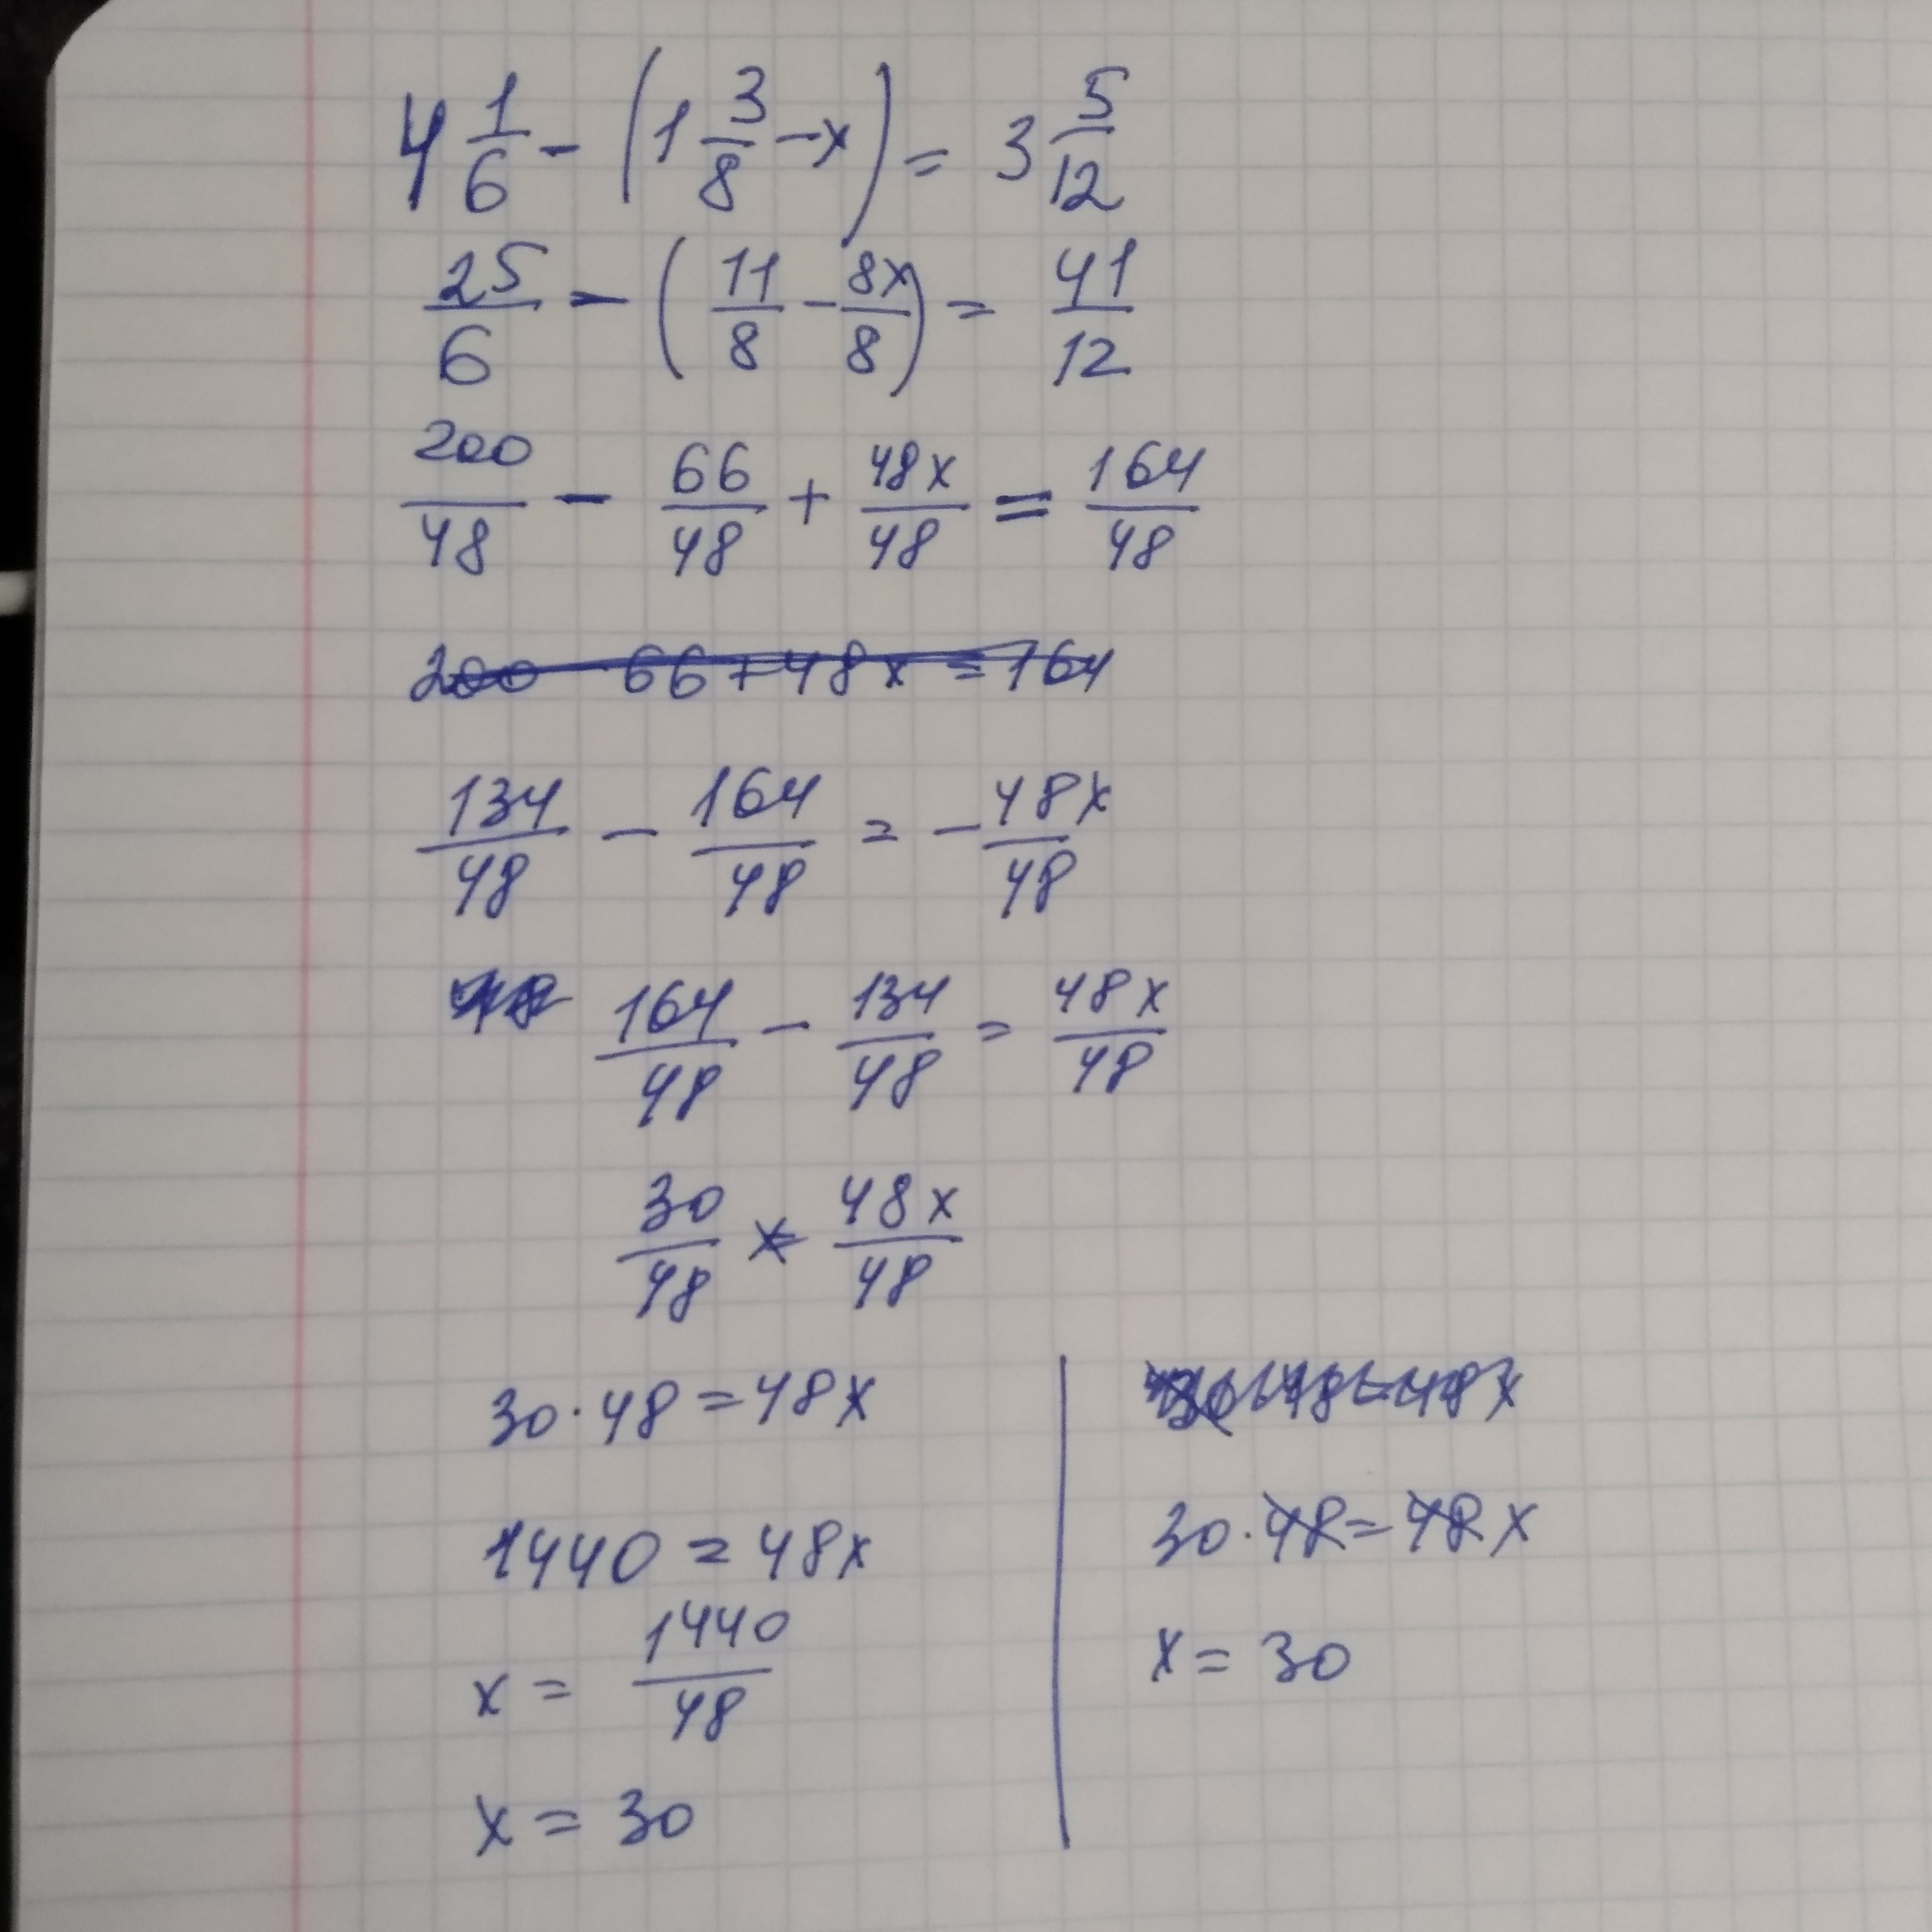 4 1/6 - (1 3/8 - x) = 3 5/12
25/6 - (11/8 - 8x/8) = 41/12
200/48 - 66/48 + 48x/48 = 164/48
200 - 66 + 48x = 164
134/48 - 164/48 = - 48x/48
164/48 - 134/48 = 48x/48
30/48 = 48x/48
30 · 48 = 48x
1440 = 48x
x = 1440/48
x = 30
30 · 48 = 48x
x = 30